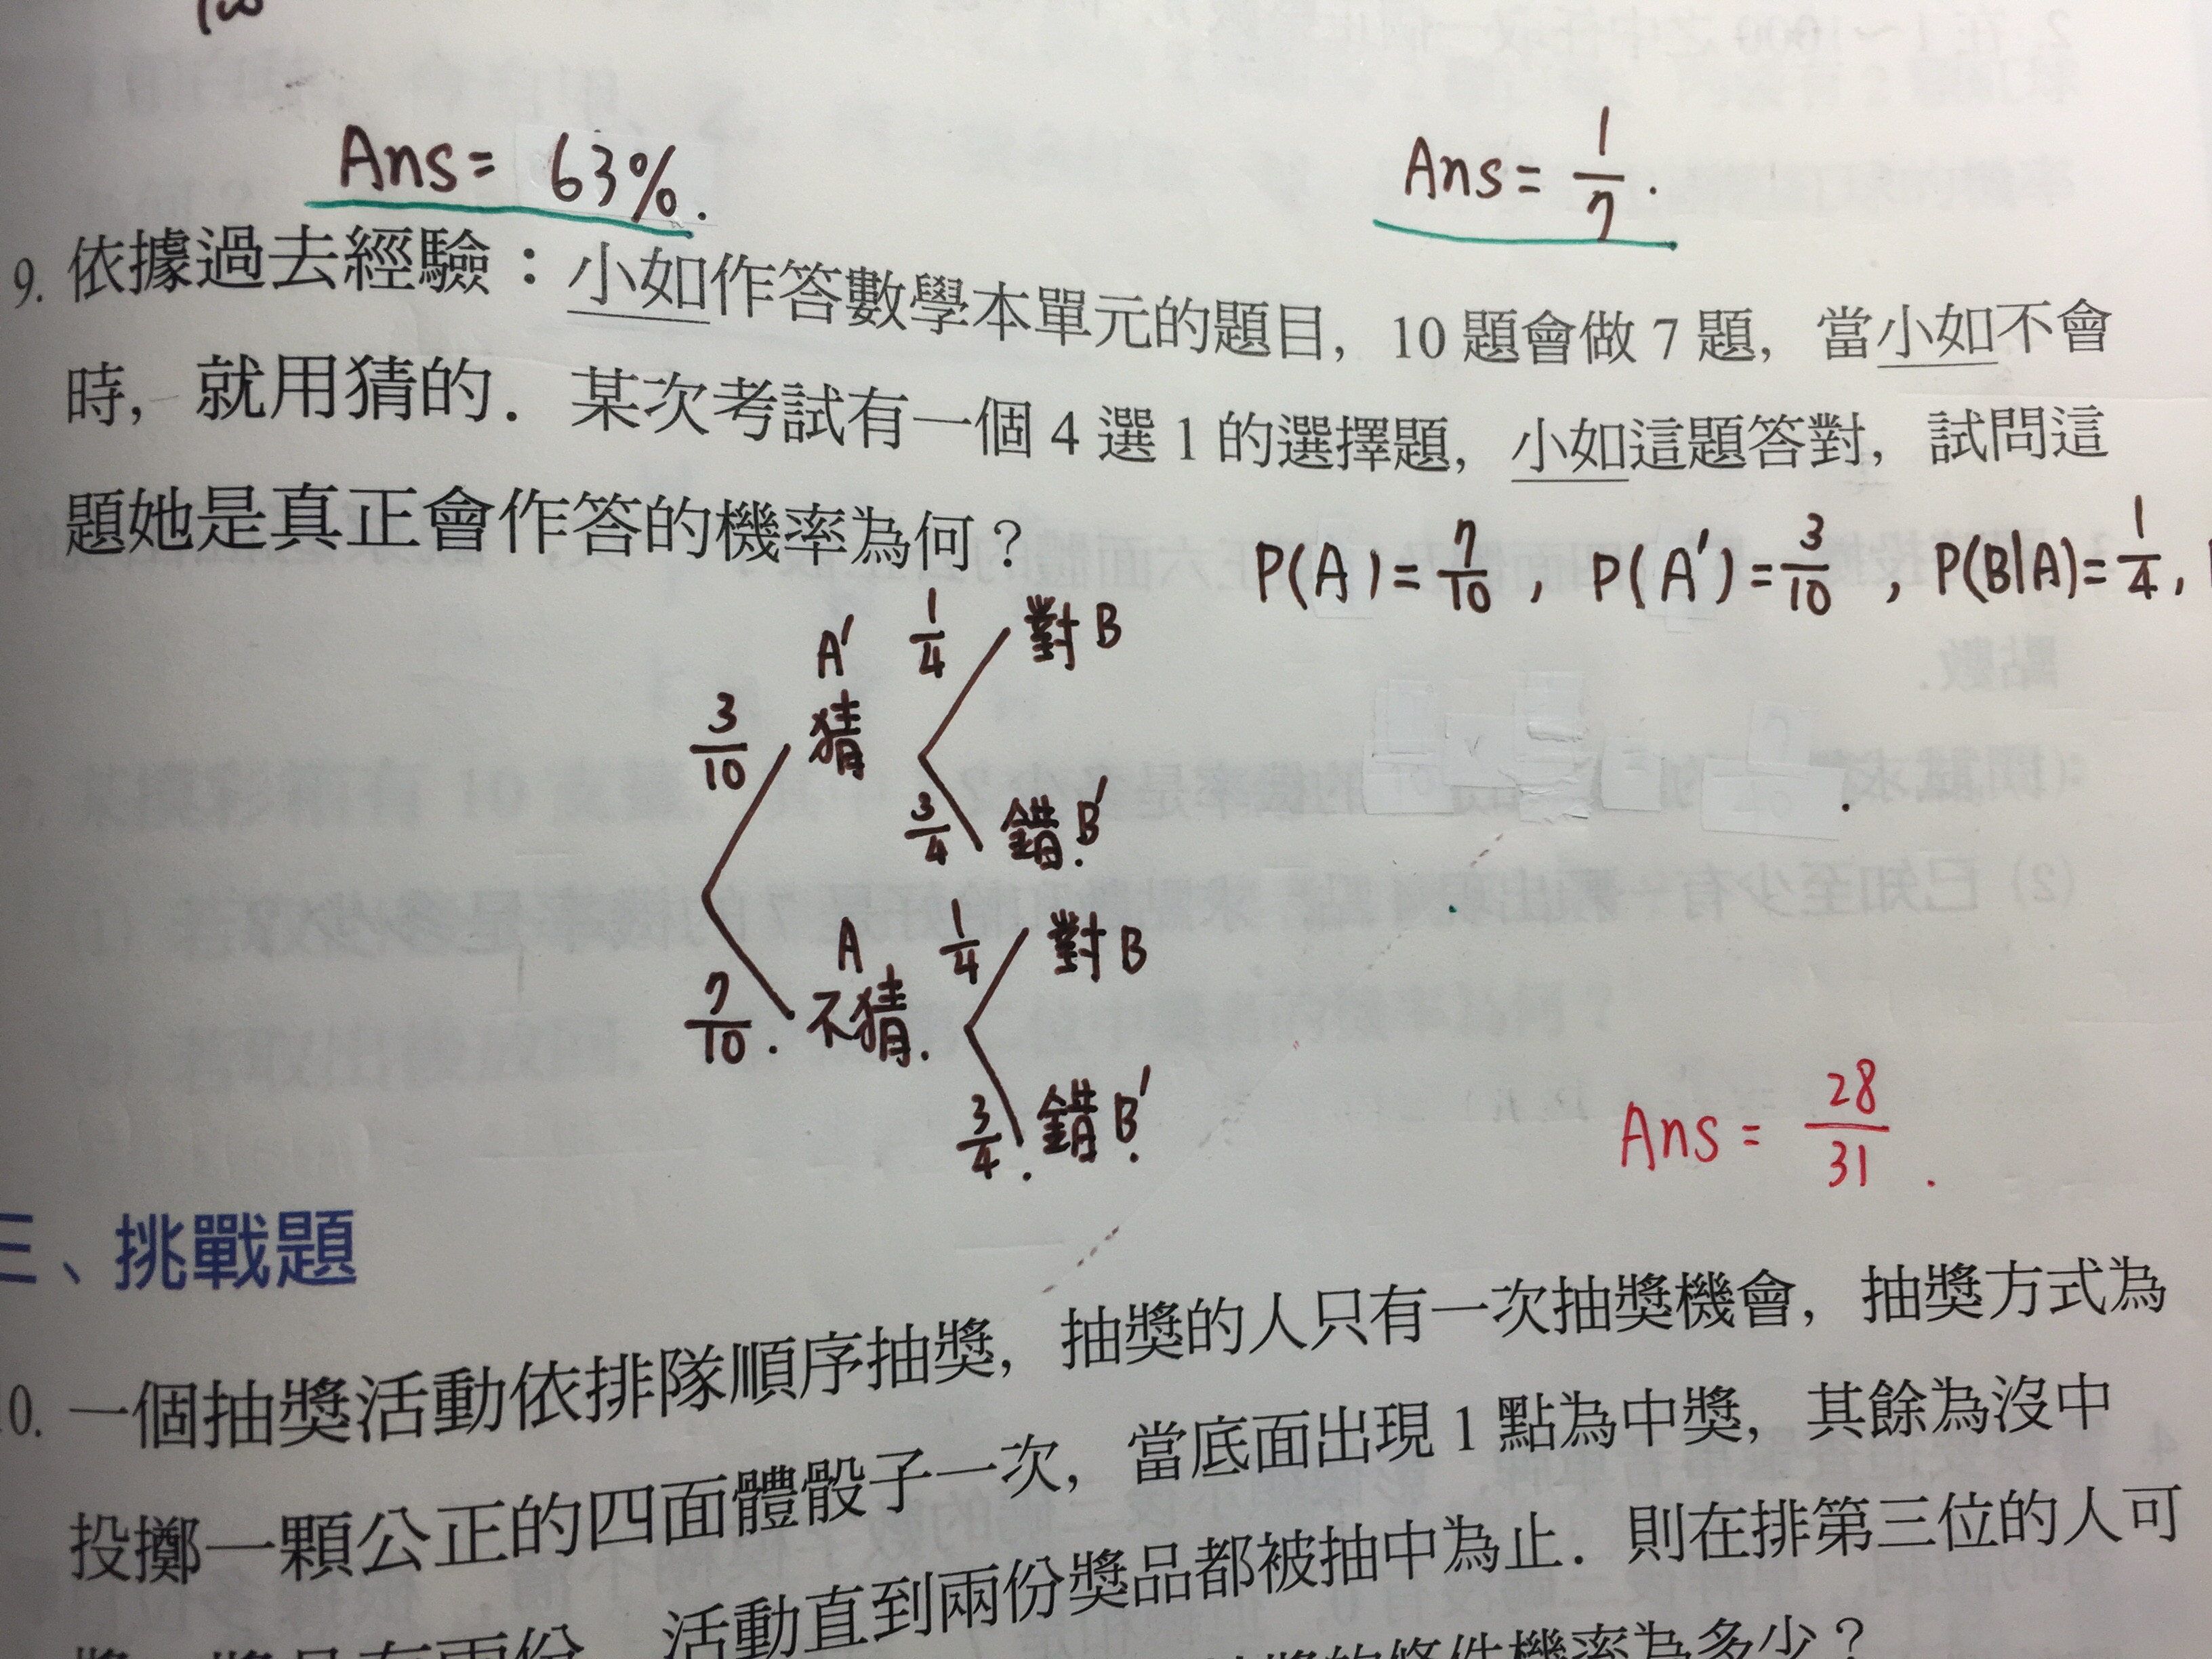 Ans = 63%.
Ans = 1/7.
9. 依據過去經驗：小如作答數學本單元的題目，10 題會做 7 題，當小如不會
時，就用猜的．某次考試有一個 4 選 1 的選擇題，小如這題答對，試問這
題她是真正會作答的機率為何？
P(A) = 7/10 , P(A') = 3/10 , P(B|A) = 1/4 ,
A' 1/4 對 B
3/10 猜
3/4 錯 B'.
A 1/4 對 B
7/10. 不猜.
3/4. 錯 B'.
Ans = 28/31.
三、挑戰題
10. 一個抽獎活動依排隊順序抽獎，抽獎的人只有一次抽獎機會，抽獎方式為
投擲一顆公正的四面體骰子一次，當底面出現 1 點為中獎，其餘為沒中
活動直到兩份獎品都被抽中為止．則在排第三位的人可
條件機率為多少？